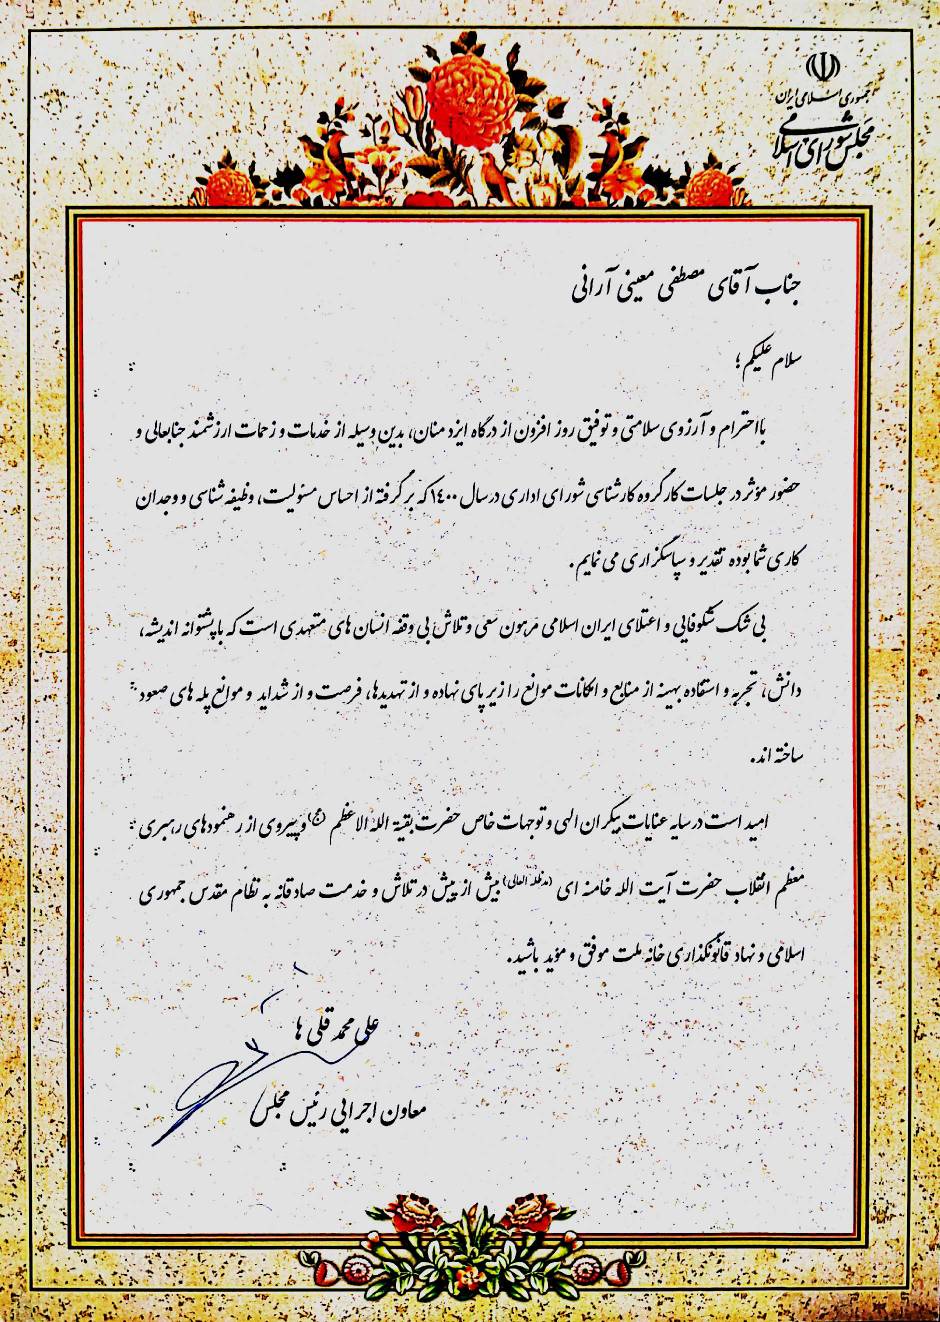 جمهوری اسلامی ایران
مجلس شورای اسلامی
جناب آقای مصطفی معینی آرانی
سلام علیکم؛
بااحترام و آرزوی سلامتی و توفیق روز افزون از درگاه ایزد منان، بدین وسیله از خدمات و زحمات ارزشمند جنابعالی و
حضور مؤثر در جلسات کارگروه کارشناسی شورای اداری در سال ۱۴۰۰ که برگرفته از احساس مسئولیت، وظیفه شناسی و وجدان
کاری شما بوده تقدیر و سپاسگزاری می نمایم.
بی شک شکوفایی و اعتلای ایران اسلامی مرهون سعی و تلاش بی وقفه انسان های متعهدی است که با پشتوانه اندیشه،
دانش، تجربه و استفاده بهینه از منابع و امکانات موانع را زیر پای نهاده و از تهدیدها، فرصت و از شداید و موانع پله های صعود
ساخته اند.
امید است در سایه عنایات بیکران الهی و توجهات خاص حضرت بقیة الله الاعظم (عج) و پیروی از رهنمودهای رهبری
معظم انقلاب حضرت آیت الله خامنه ای (مدظله العالی) بیش از پیش در تلاش و خدمت صادقانه به نظام مقدس جمهوری
اسلامی و نهاد قانونگذاری خانه ملت موفق و مؤید باشید.
علی محمد قلی ها
معاون اجرایی رئیس مجلس